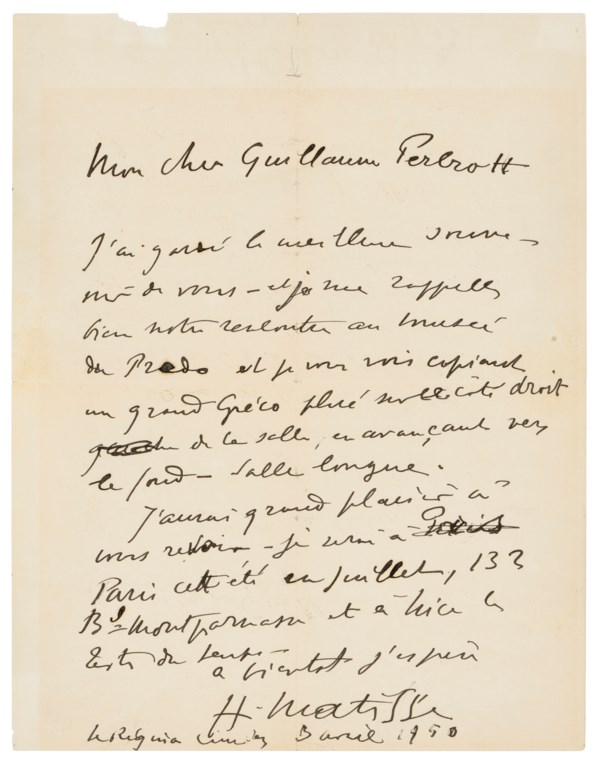 Mon cher Guillaume Perbrott
J'ai gardé le meilleur souve-
nir de vous – et je me rappelle
bien notre rencontre au musée
du Prado et je vous vois copiant
un grand Gréco placé sur le côté droit
gauche de la salle, en avançant vers
le fond – Salle longue.
J'aurai grand plaisir à
vous revoir – je serai à Paris
Paris cet été en Juillet, 132
Bd Montparnasse et à Nice le
reste du temps –
à bientôt j'espère
H. Matisse
3 avril 1950